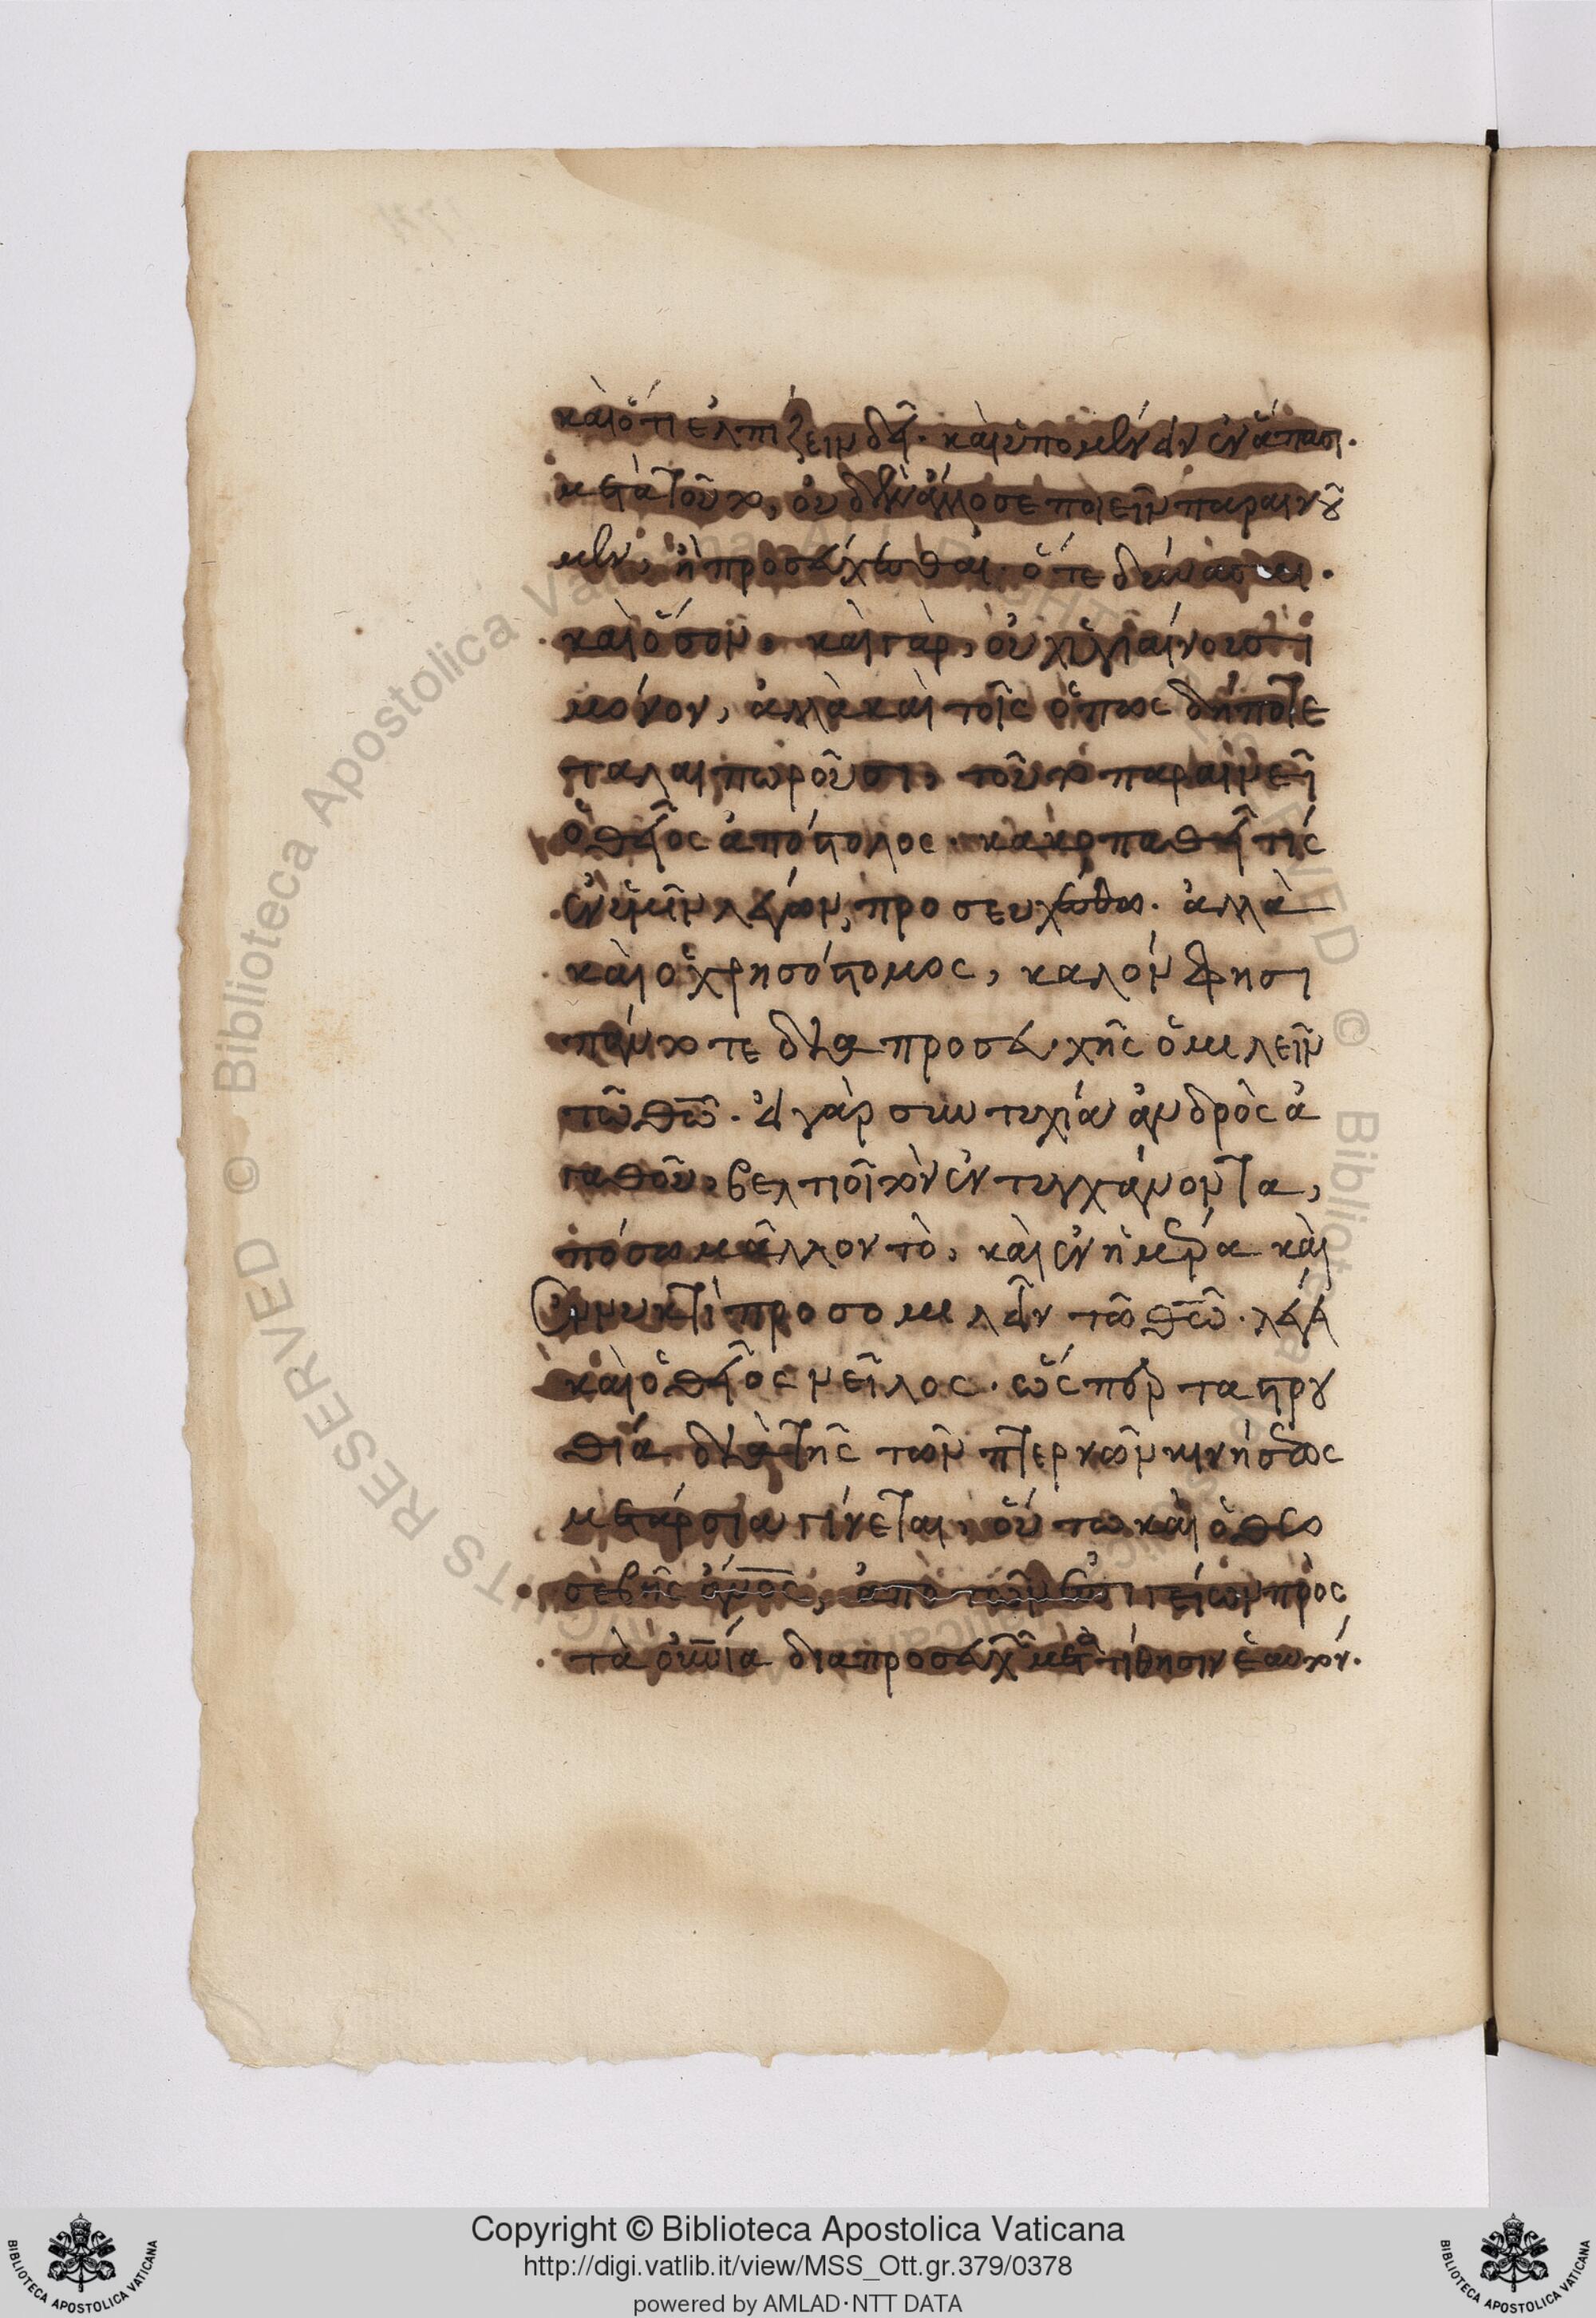 καὶ ὅτι ἐλπίζειν δεῖ. καὶ ὑπομένειν ἐν ἅπασι.
μετὰ τοῦτο, οὐδὲν ἄλλο σε ποιεῖν παραινοῦ
μεν, ἢ προσεύχεσθαι ὅτε δύνασαι.
καὶ ὅσον. καὶ γὰρ, οὐχ ὑγιαίνουσι
μόνον, ἀλλὰ καὶ τοῖς ὅπως δήποτε
ταλαιπωροῦσι, τοῦτο παραινεῖ
ὁ θεῖος ἀπόστολος. κακοπαθεῖ τίς
ἐν ὑμῖν λέγων, προσευχέσθω. ἀλλὰ
καὶ ὁ χρυσόστομος, καλόν φησι
πάντοτε διὰ προσευχῆς ὁμιλεῖν
τῶ θῶ. εἰ γὰρ συντυχία ἀνδρὸς ἀ
γαθοῦ, βελτιοῖ τὸν ἐντυγχάνοντα,
πόσω μᾶλλον τὸ, καὶ ἐν ἡμέρα καὶ
ἐν νυκτὶ προσομιλεῖν τῶ θῶ. λέγει
καὶ ὁ θεῖος νεῖλος. ὥσπερ τὰ στρου
θία διὰ τῆς τῶν πτερνῶν κινήσεως
μετάρσια γίνεται, οὕτω καὶ ὁ θεο
σεβὴς ἄνος, ἀπὸ τῶν ἐπιγείων πρὸς
τὰ οὐνία διὰ προσευχῆς μετατίθησιν ἑαυτόν.
Copyright © Biblioteca Apostolica Vaticana
http://digi.vatlib.it/view/MSS_Ott.gr.379/0378
powered by AMLAD·NTT DATA
BIBLIOTECA APOSTOLICA VATICANA
BIBLIOTECA APOSTOLICA VATICANA